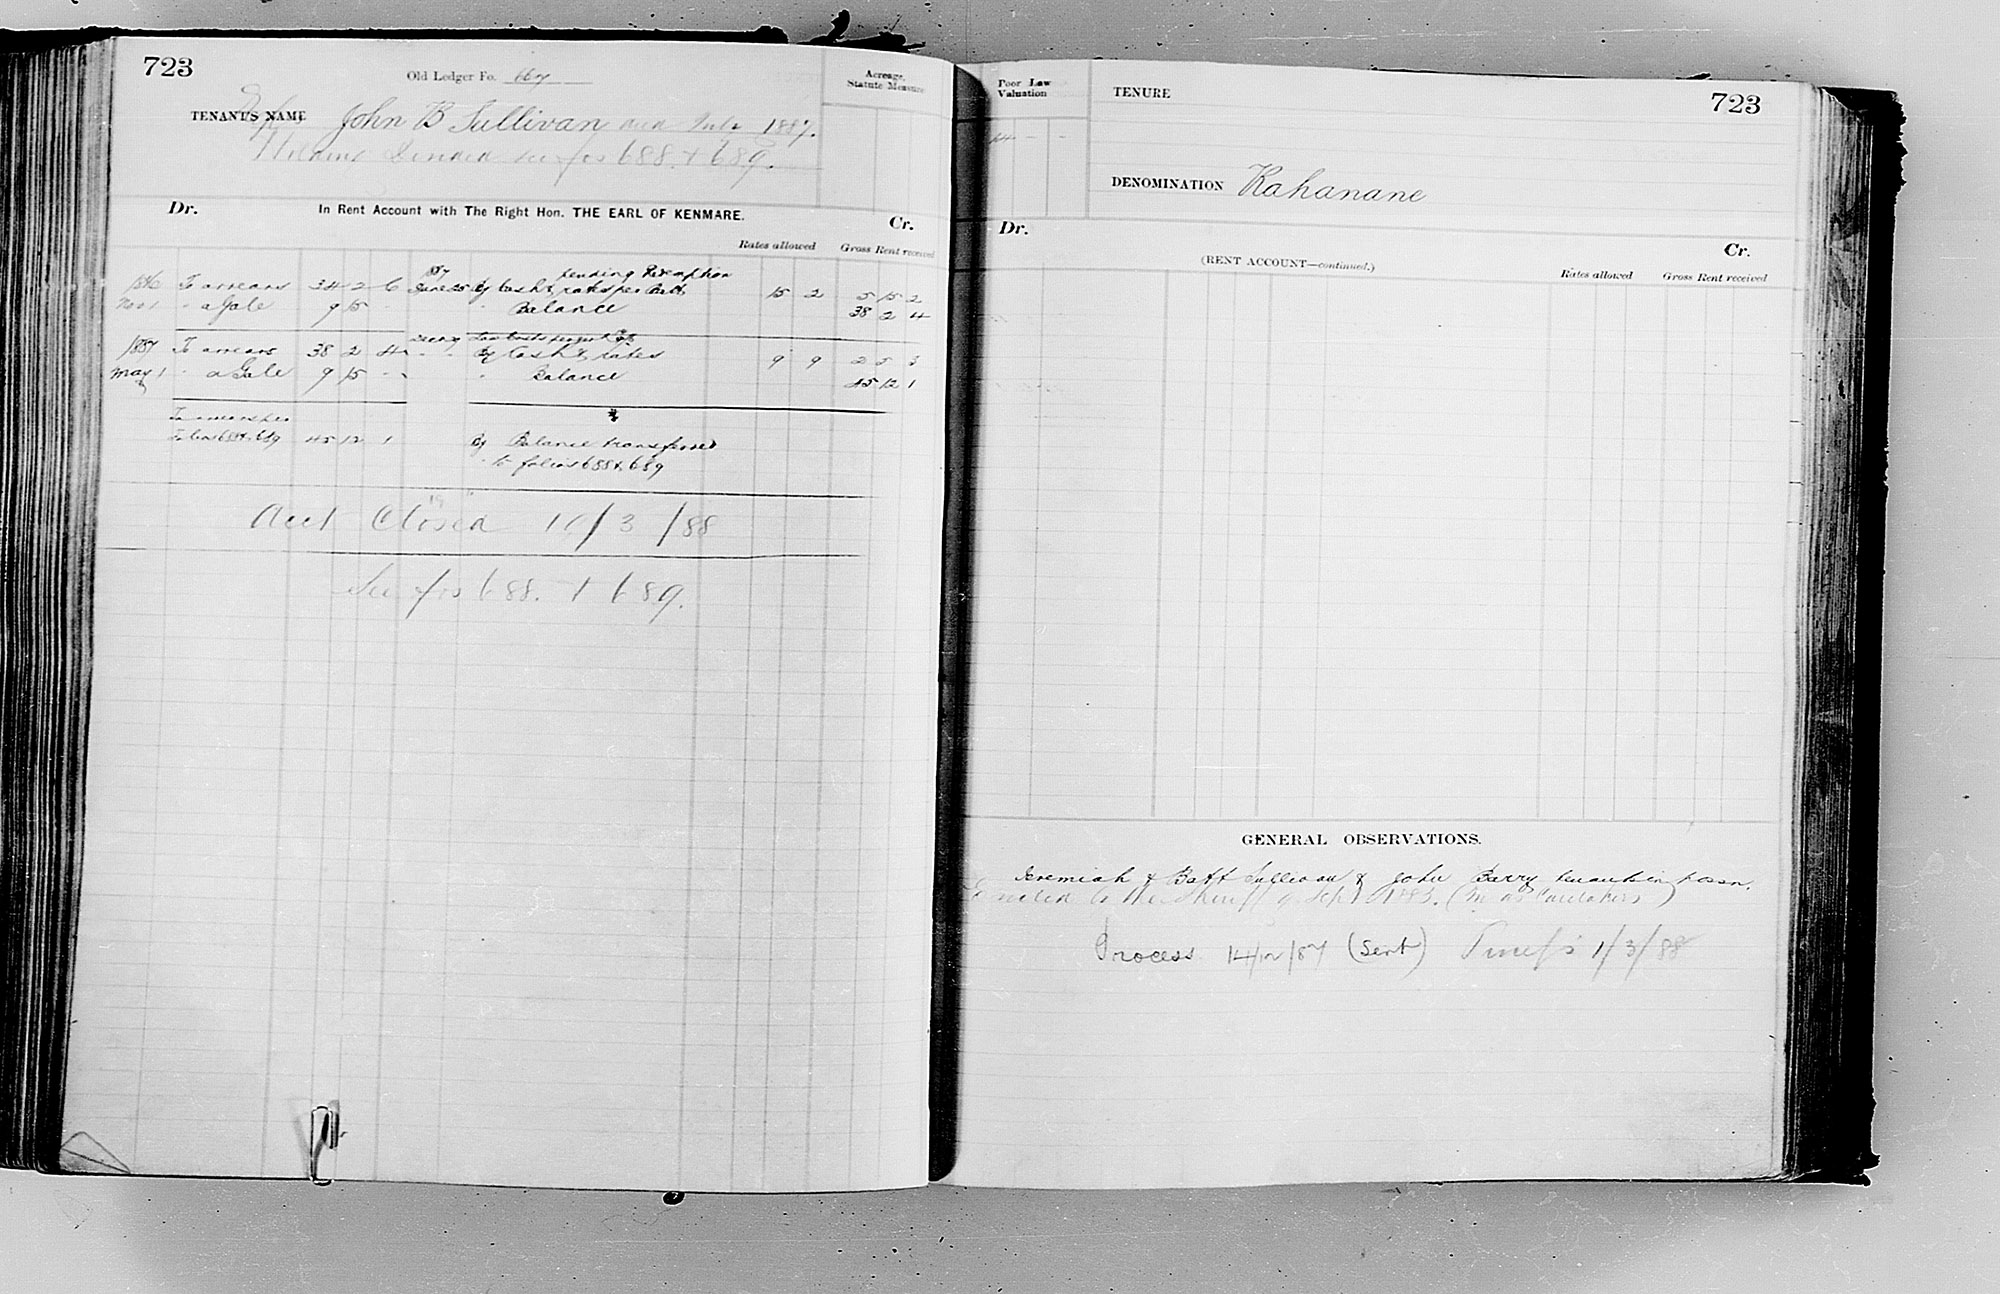 723
Old Ledger Fo. 667
Acreage,
Statute Measure
TENANT'S NAME John B Sullivan died July 1887.
Holding divided see fos 688. & 689.
Dr. In Rent Account with The Right Hon. THE EARL OF KENMARE. Cr.
Rates allowed Gross Rent received
1887 pending Redemption
1886 To arrears 34 2 6 June 25 By Cash & rates per Batt 15 2 5 15 2
Nov 1 " a Gale 9 15 - " Balance 38 2 4
1887 To arrears 38 2 4 " " By Cash & rates 9 9 2 5 3
May 1 " a Gale 9 15 - " Balance 45 12 1
To arrears per
folios 688 & 689 45 12 1 By Balance transferred
to folios 688 & 689
Acct Closed 19/3/88
See fos 688. & 689.
Poor Law
Valuation
TENURE
723
DENOMINATION Kahanane
Dr. Cr.
(RENT ACCOUNT—continued.)
Rates allowed Gross Rent received
GENERAL OBSERVATIONS.
Jeremiah & Batt Sullivan & John Barry tenants in possn.
Evicted by the Sheriff 9 Sept 1885. (In as Caretakers)
Process 14/12/87 (Sent) 1/3/88